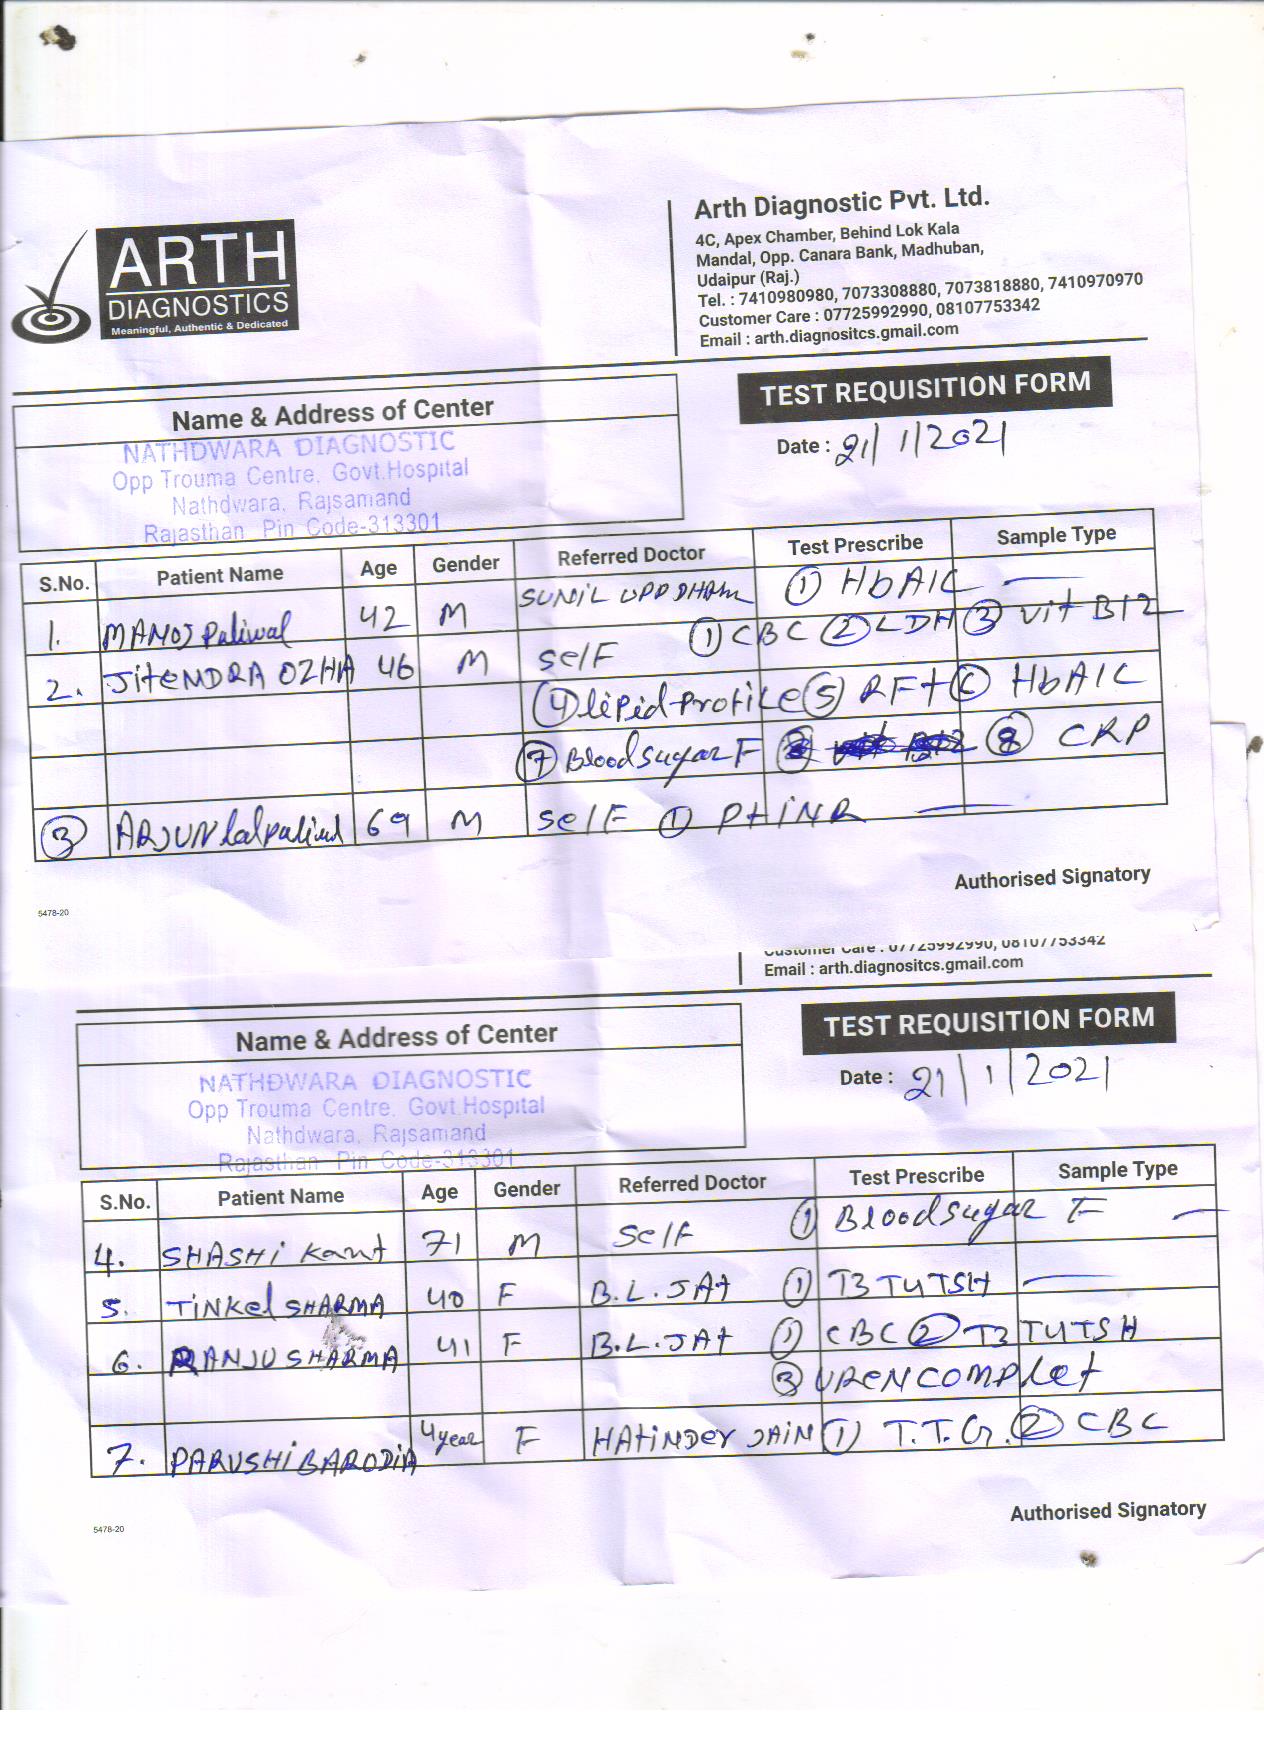 ARTH
DIAGNOSTICS
Meaningful, Authentic & Dedicated
Arth Diagnostic Pvt. Ltd.
4C, Apex Chamber, Behind Lok Kala
Mandal, Opp. Canara Bank, Madhuban,
Udaipur (Raj.)
Tel. : 7410980980, 7073308880, 7073818880, 7410970970
Customer Care : 07725992990, 08107753342
Email : arth.diagnositcs.gmail.com
TEST REQUISITION FORM
Date : 21/1/2021
Name & Address of Center
NATHDWARA DIAGNOSTIC
Opp Trouma Centre, Govt.Hospital
Nathdwara, Rajsamand
Rajasthan Pin Code-313301
S.No. Patient Name Age Gender Referred Doctor Test Prescribe Sample Type
1. MANOJ Paliwal 42 M SUNIL UPPDHAM ① HbA1C —
2. JitENDRA OZHA 46 M Self ① CBC ② LDH ③ Vit B12
④ lipid profile ⑤ RFt ⑥ HbA1C
⑦ Blood sugar F ⑧ CRP
③ ARJUN lal paliwal 69 M Self ① PHINR —
Authorised Signatory
5478-20
Customer Care : 07725992990, 08107753342
Email : arth.diagnositcs.gmail.com
TEST REQUISITION FORM
Date : 21/1/2021
Name & Address of Center
NATHDWARA DIAGNOSTIC
Opp Trouma Centre, Govt.Hospital
Nathdwara, Rajsamand
Rajasthan Pin Code-313301
S.No. Patient Name Age Gender Referred Doctor Test Prescribe Sample Type
4. SHASHi Kant 71 M Self ① Blood sugar F —
5. TiNKel SHARMA 40 F B.L.JAt ① T3 T4 TSH —
6. RANJU SHARMA 41 F B.L.JAt ① CBC ② T3 T4 TSH
③ UREN COMPLet
7. PARUSHi BARODIA 4 year F HAtiNDer JAIN ① T.T.G. ② CBC
Authorised Signatory
5478-20